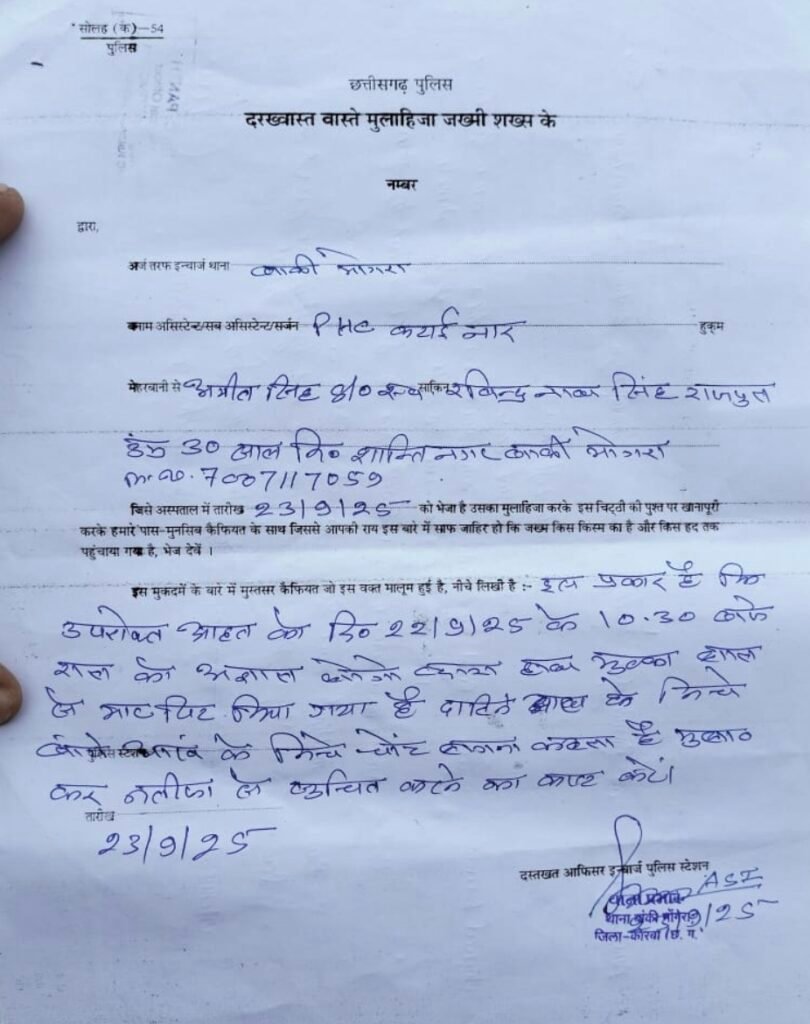 सोलह (के)—54
पुलिस
छत्तीसगढ़ पुलिस
दरख्वास्त वास्ते मुलाहिजा जख्मी शख्स के
नम्बर
द्वारा,
अर्ज तरफ इन्चार्ज थाना बाकी मोगरा
बनाम असिस्टेन्ट/सब असिस्टेन्ट/सर्जन PHC कटाईनार हुकुम
मेहरबानी से सिंह S/O स्व साकिन रविन्द्र नाथ सिंह राजपुत
उम्र 30 साल नि० शान्ति नगर बाकी मोगरा
m.no. 7007117059
जिसे अस्पताल में तारीख 23/9/25 को भेजा है उसका मुलाहिजा करके इस चिट्ठी की पुश्त पर खानापूरी
करके हमारे पास-मुनसिब कैफियत के साथ जिससे आपकी राय इस बारे में साफ जाहिर हो कि जख्म किस किस्म का है और किस हद तक
पहुंचाया गया है, भेज देवें ।
इस मुकदमें के बारे में मुख्तसर कैफियत जो इस वक्त मालूम हुई है, नीचे लिखी है :- इस प्रकार है कि
उपरोक्त आहत को दि० 22/9/25 के 10.30 बजे
रात को अज्ञात लोगो द्वारा हाथ मुक्का लात
से मारपिट किया गया है दाहिने आंख के निचे
पुलिस स्टेशन के निचे चोंट लगना बताता है
कर नतीजा से सुचित करने का कष्ट करें।
तारीख
23/9/25
दस्तखत आफिसर इन्चार्ज पुलिस स्टेशन
ASI
थाना प्रभारी
थाना बांकी मोंगरा /25
जिला-कोरबा (छ. ग.)